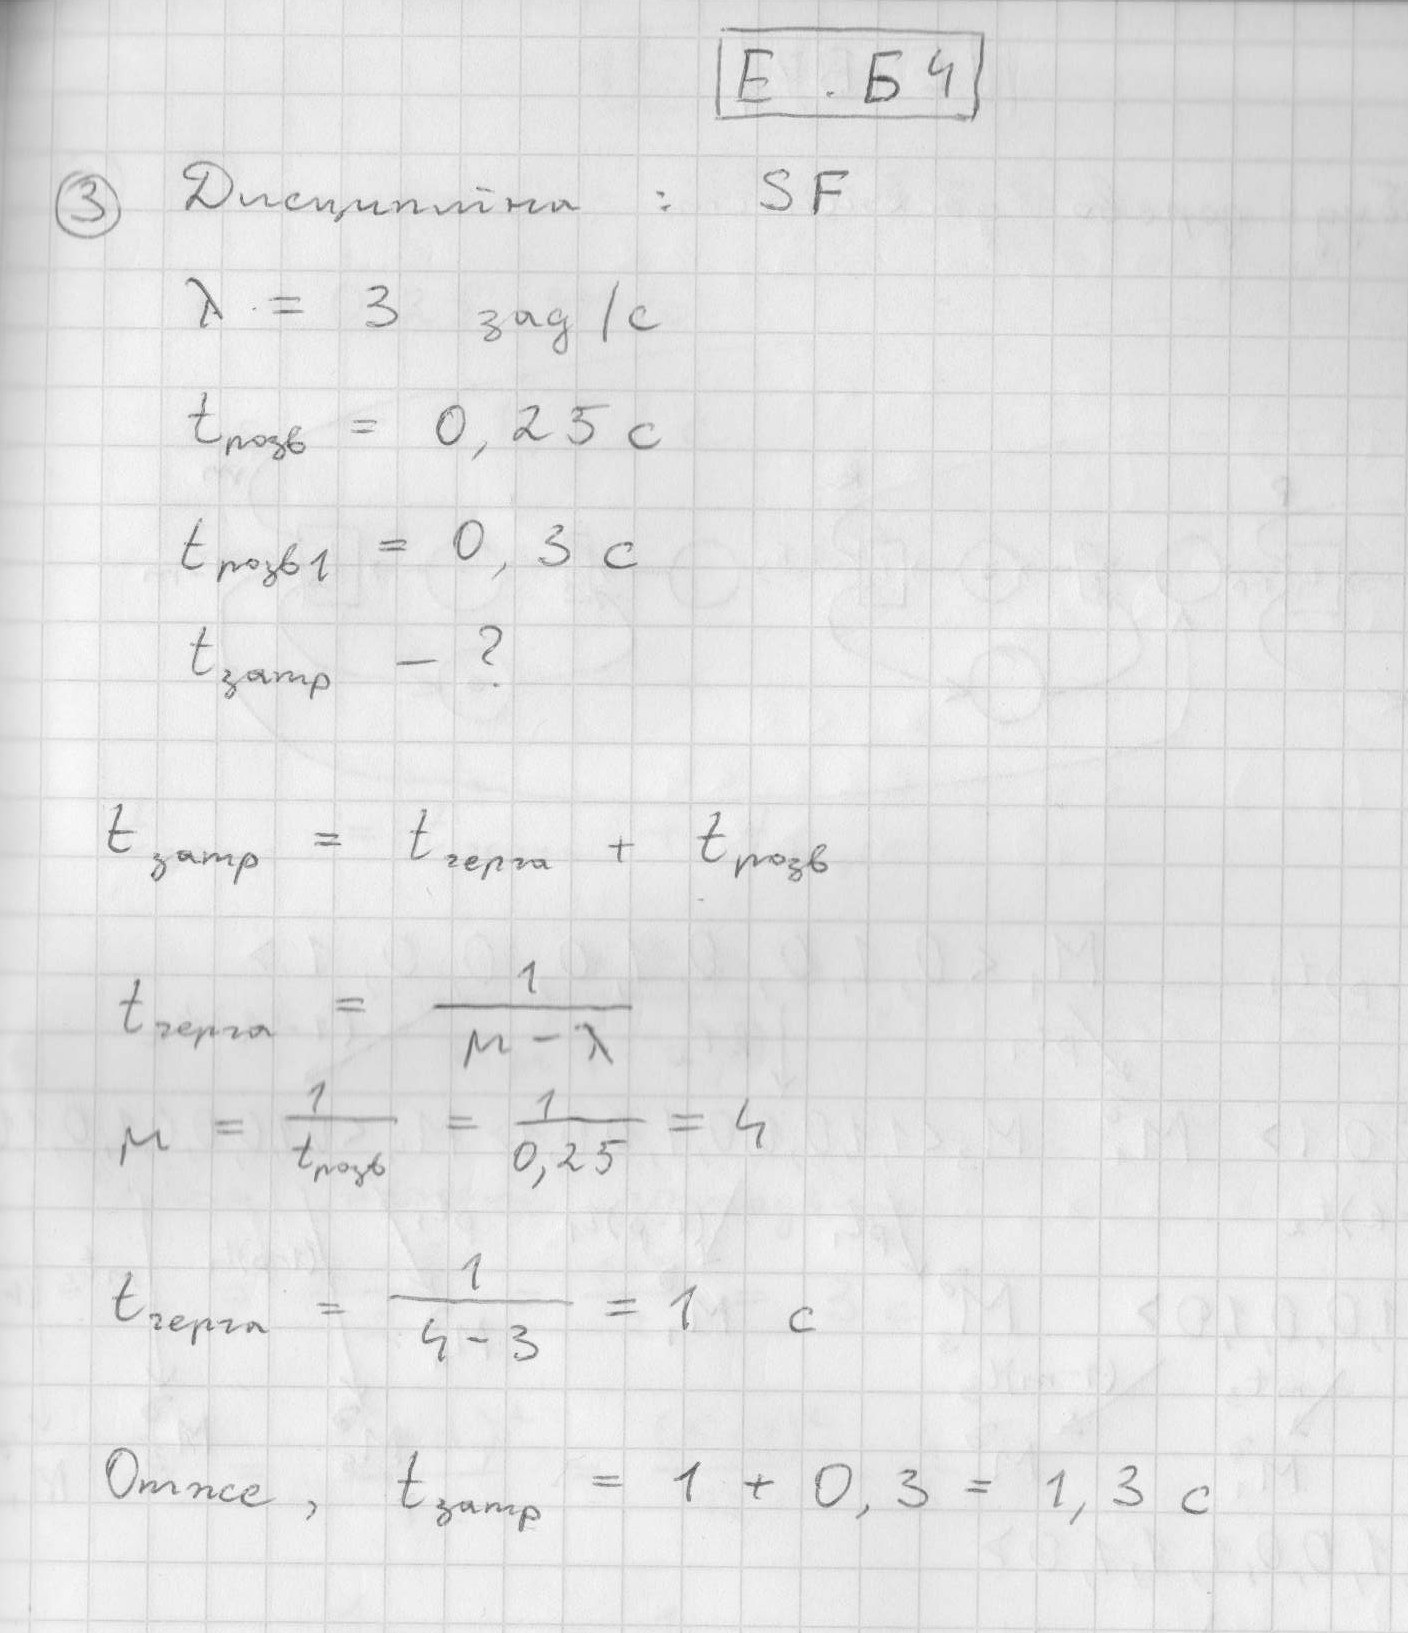 Е . Б4
③ Дисципліна : SF
λ = 3 зад/с
tрозв = 0,25 с
tрозв1 = 0,3 с
tзатр – ?
tзатр = tчерга + tрозв
tчерга = 1/(μ – λ)
μ = 1/tрозв = 1/0,25 = 4
tчерга = 1/(4–3) = 1 с
Отже, tзатр = 1 + 0,3 = 1,3 с